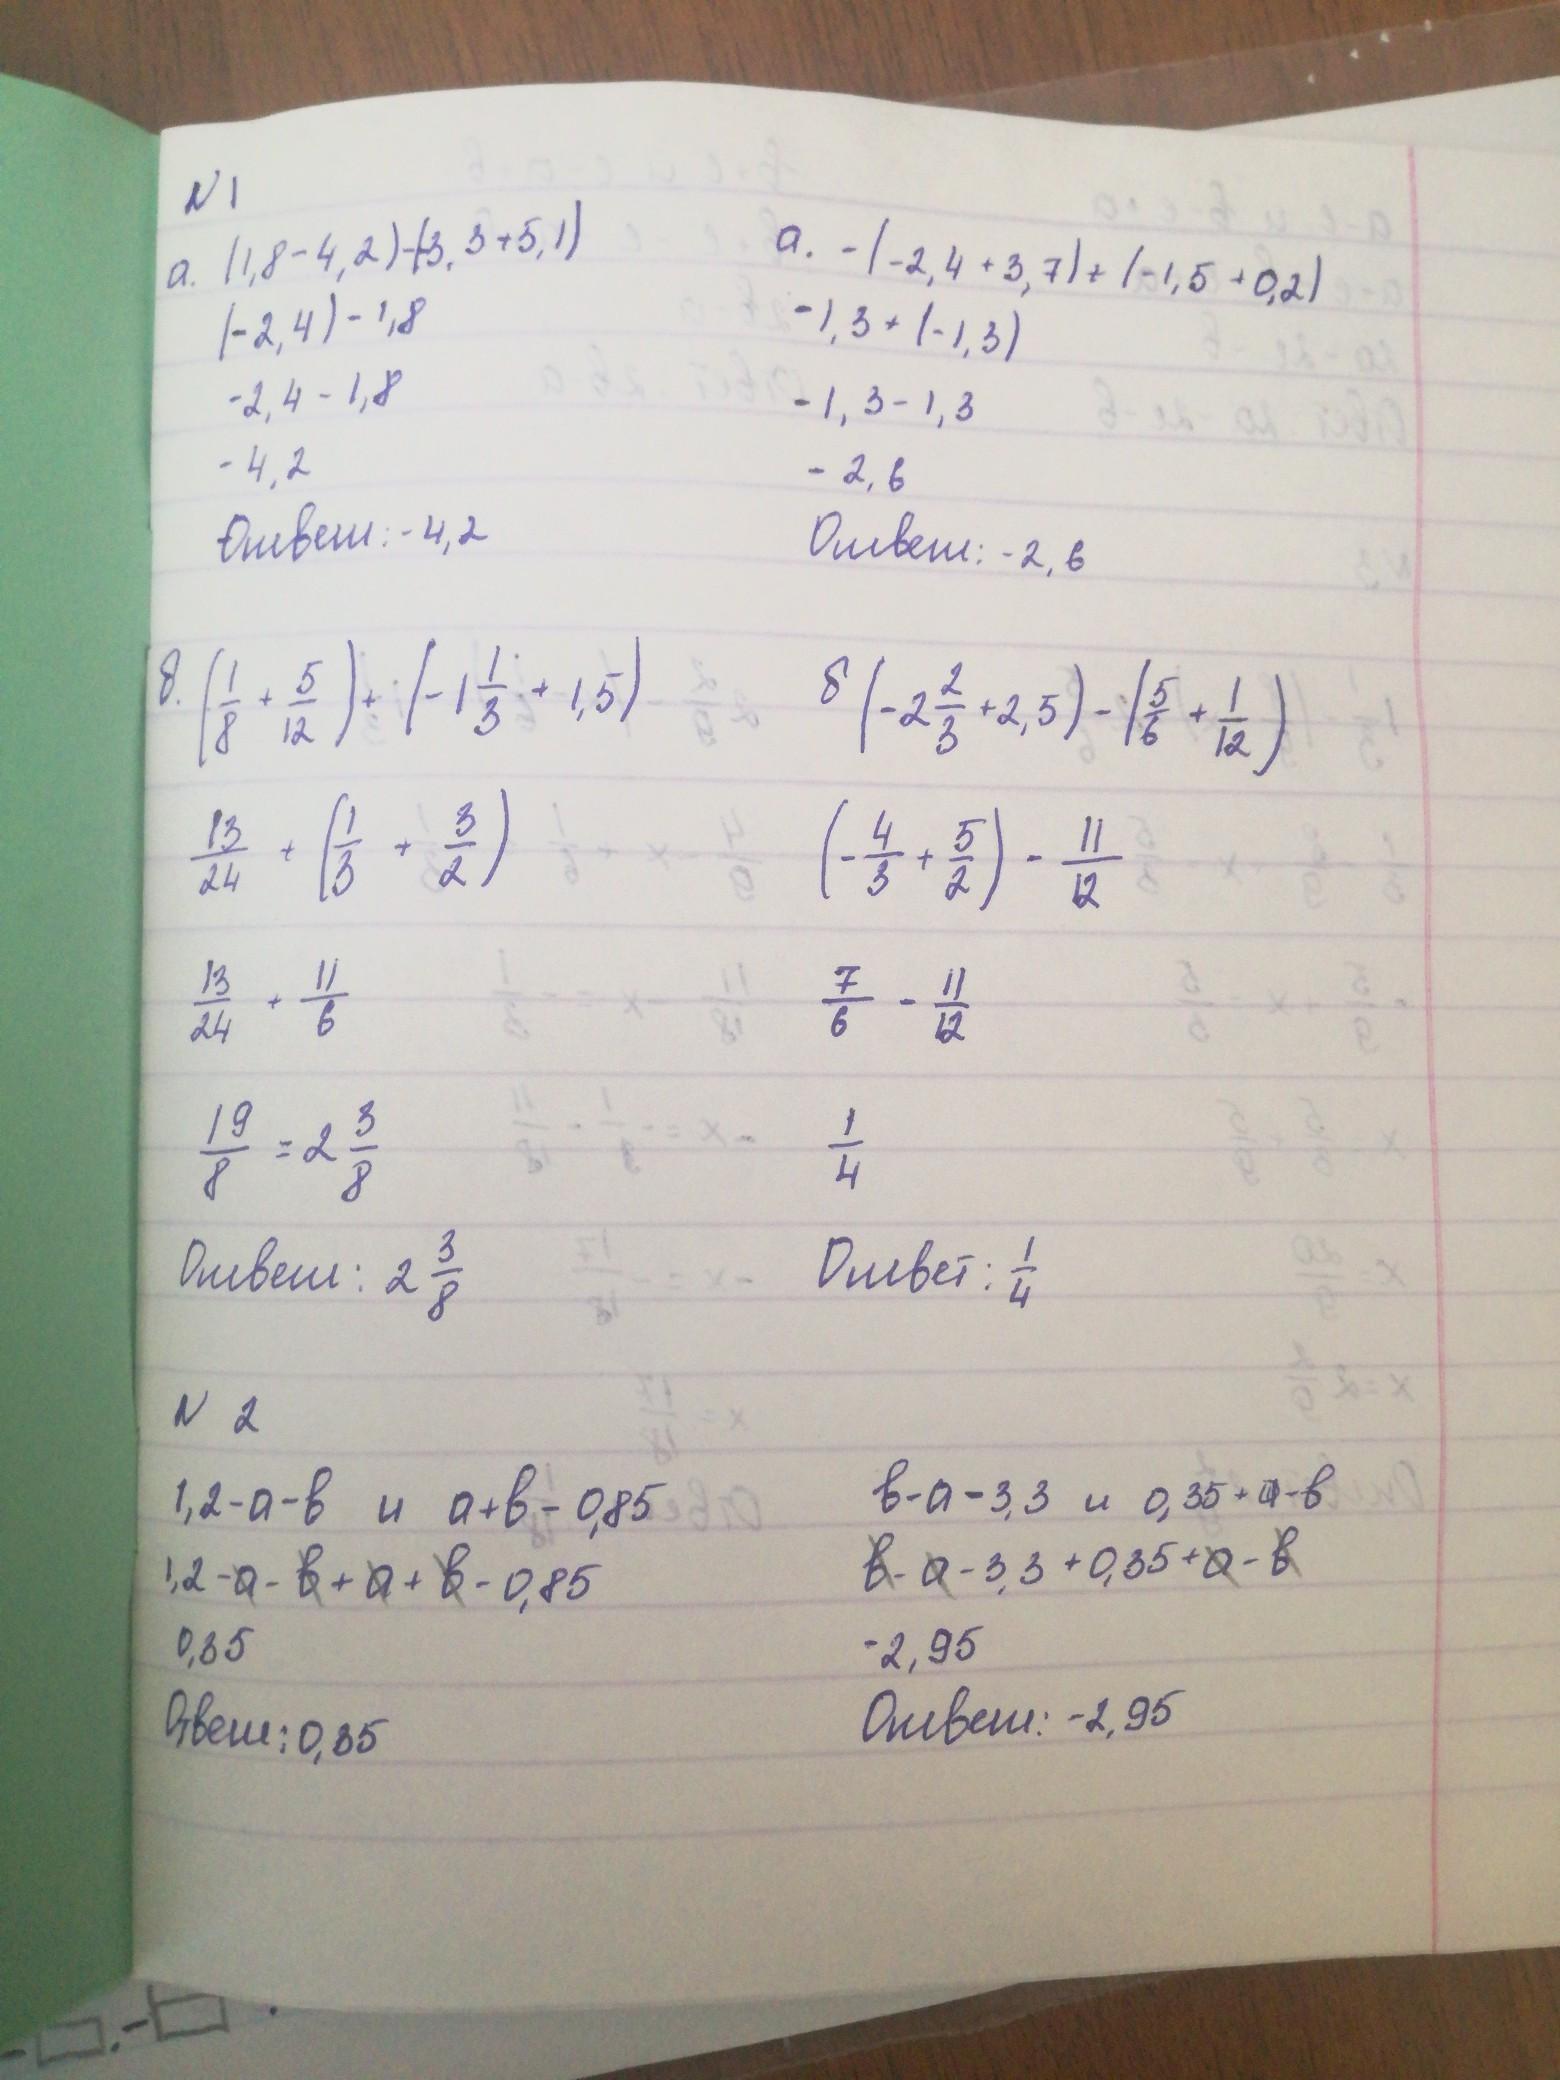 N 1
а. (1,8-4,2)-(-3,3+5,1)
(-2,4)-1,8
-2,4-1,8
-4,2
Ответ: -4,2
а. -(-2,4+3,7)+(-1,5+0,2)
-1,3+(-1,3)
-1,3-1,3
-2,6
Ответ: -2,6
б. (1/8 + 5/12) + (-1 1/3 + 1,5)
13/24 + (1/3 + 3/2)
13/24 + 11/6
19/8 = 2 3/8
Ответ: 2 3/8
б (-2 2/3 + 2,5) - (5/6 + 1/12)
(-4/3 + 5/2) - 11/12
7/6 - 11/12
1/4
Ответ: 1/4
N 2
1,2-а-в и а+в-0,85
1,2-а-в+а+в-0,85
0,35
Отвеш: 0,35
в-а-3,3 и 0,35+а-в
в-а-3,3+0,35+а-в
-2,95
Ответ: -2,95